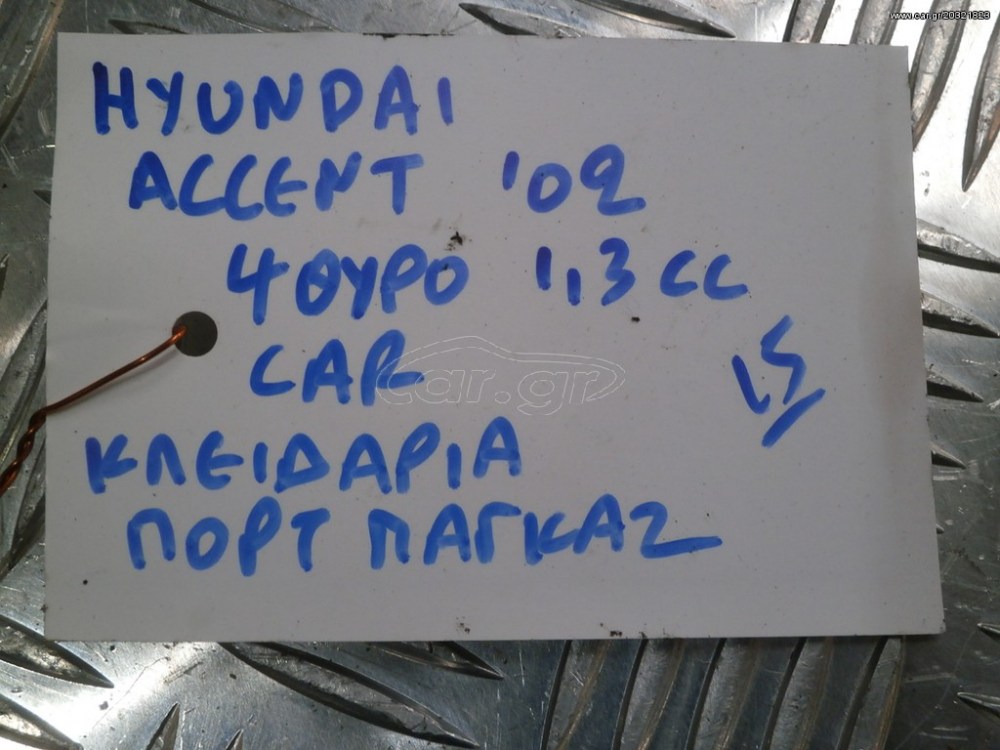 www.car.gr/20321823
HYUNDAI
ACCENT '02
4ΘΥΡΟ 1,3 CC
CAR
car.gr
ΚΛΕΙΔΑΡΙΑ
ΠΟΡΤ ΠΑΓΚΑΖ